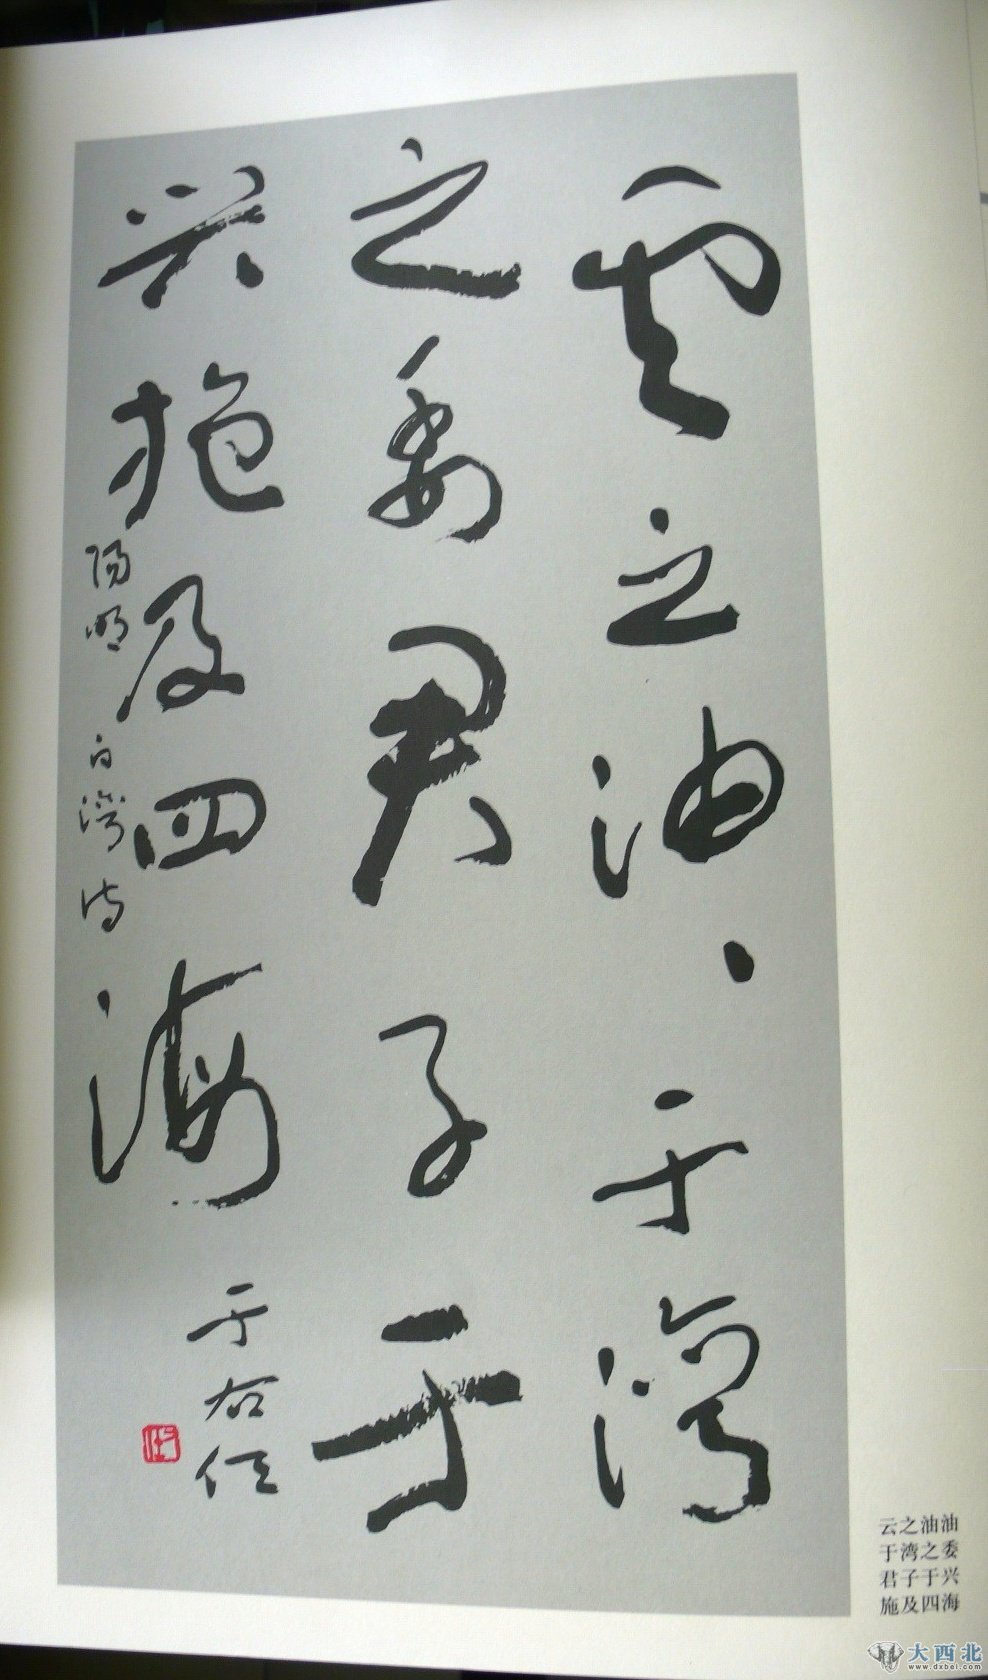 雲之油、于灣
之委君子于
兴抱及四海
陽明 白灣诗
于右任
云之油油
于湾之委
君子于兴
施及四海
大西北
www.dxbei.com